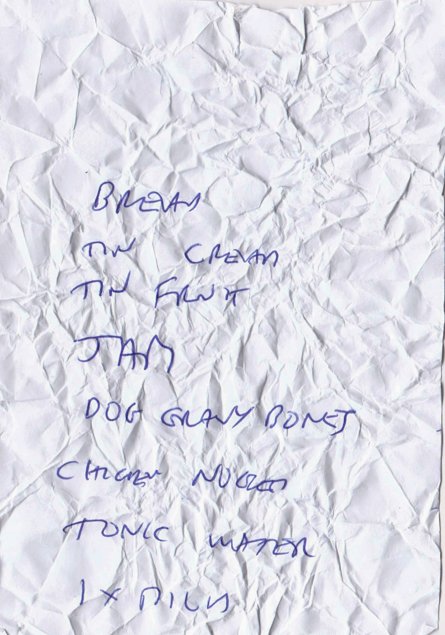 BREAD
TIN CREAM
TIN FRUIT
JAM
DOG GRAVY BONES
CHICKEN NUGGETS
TONIC WATER
1 X MILK